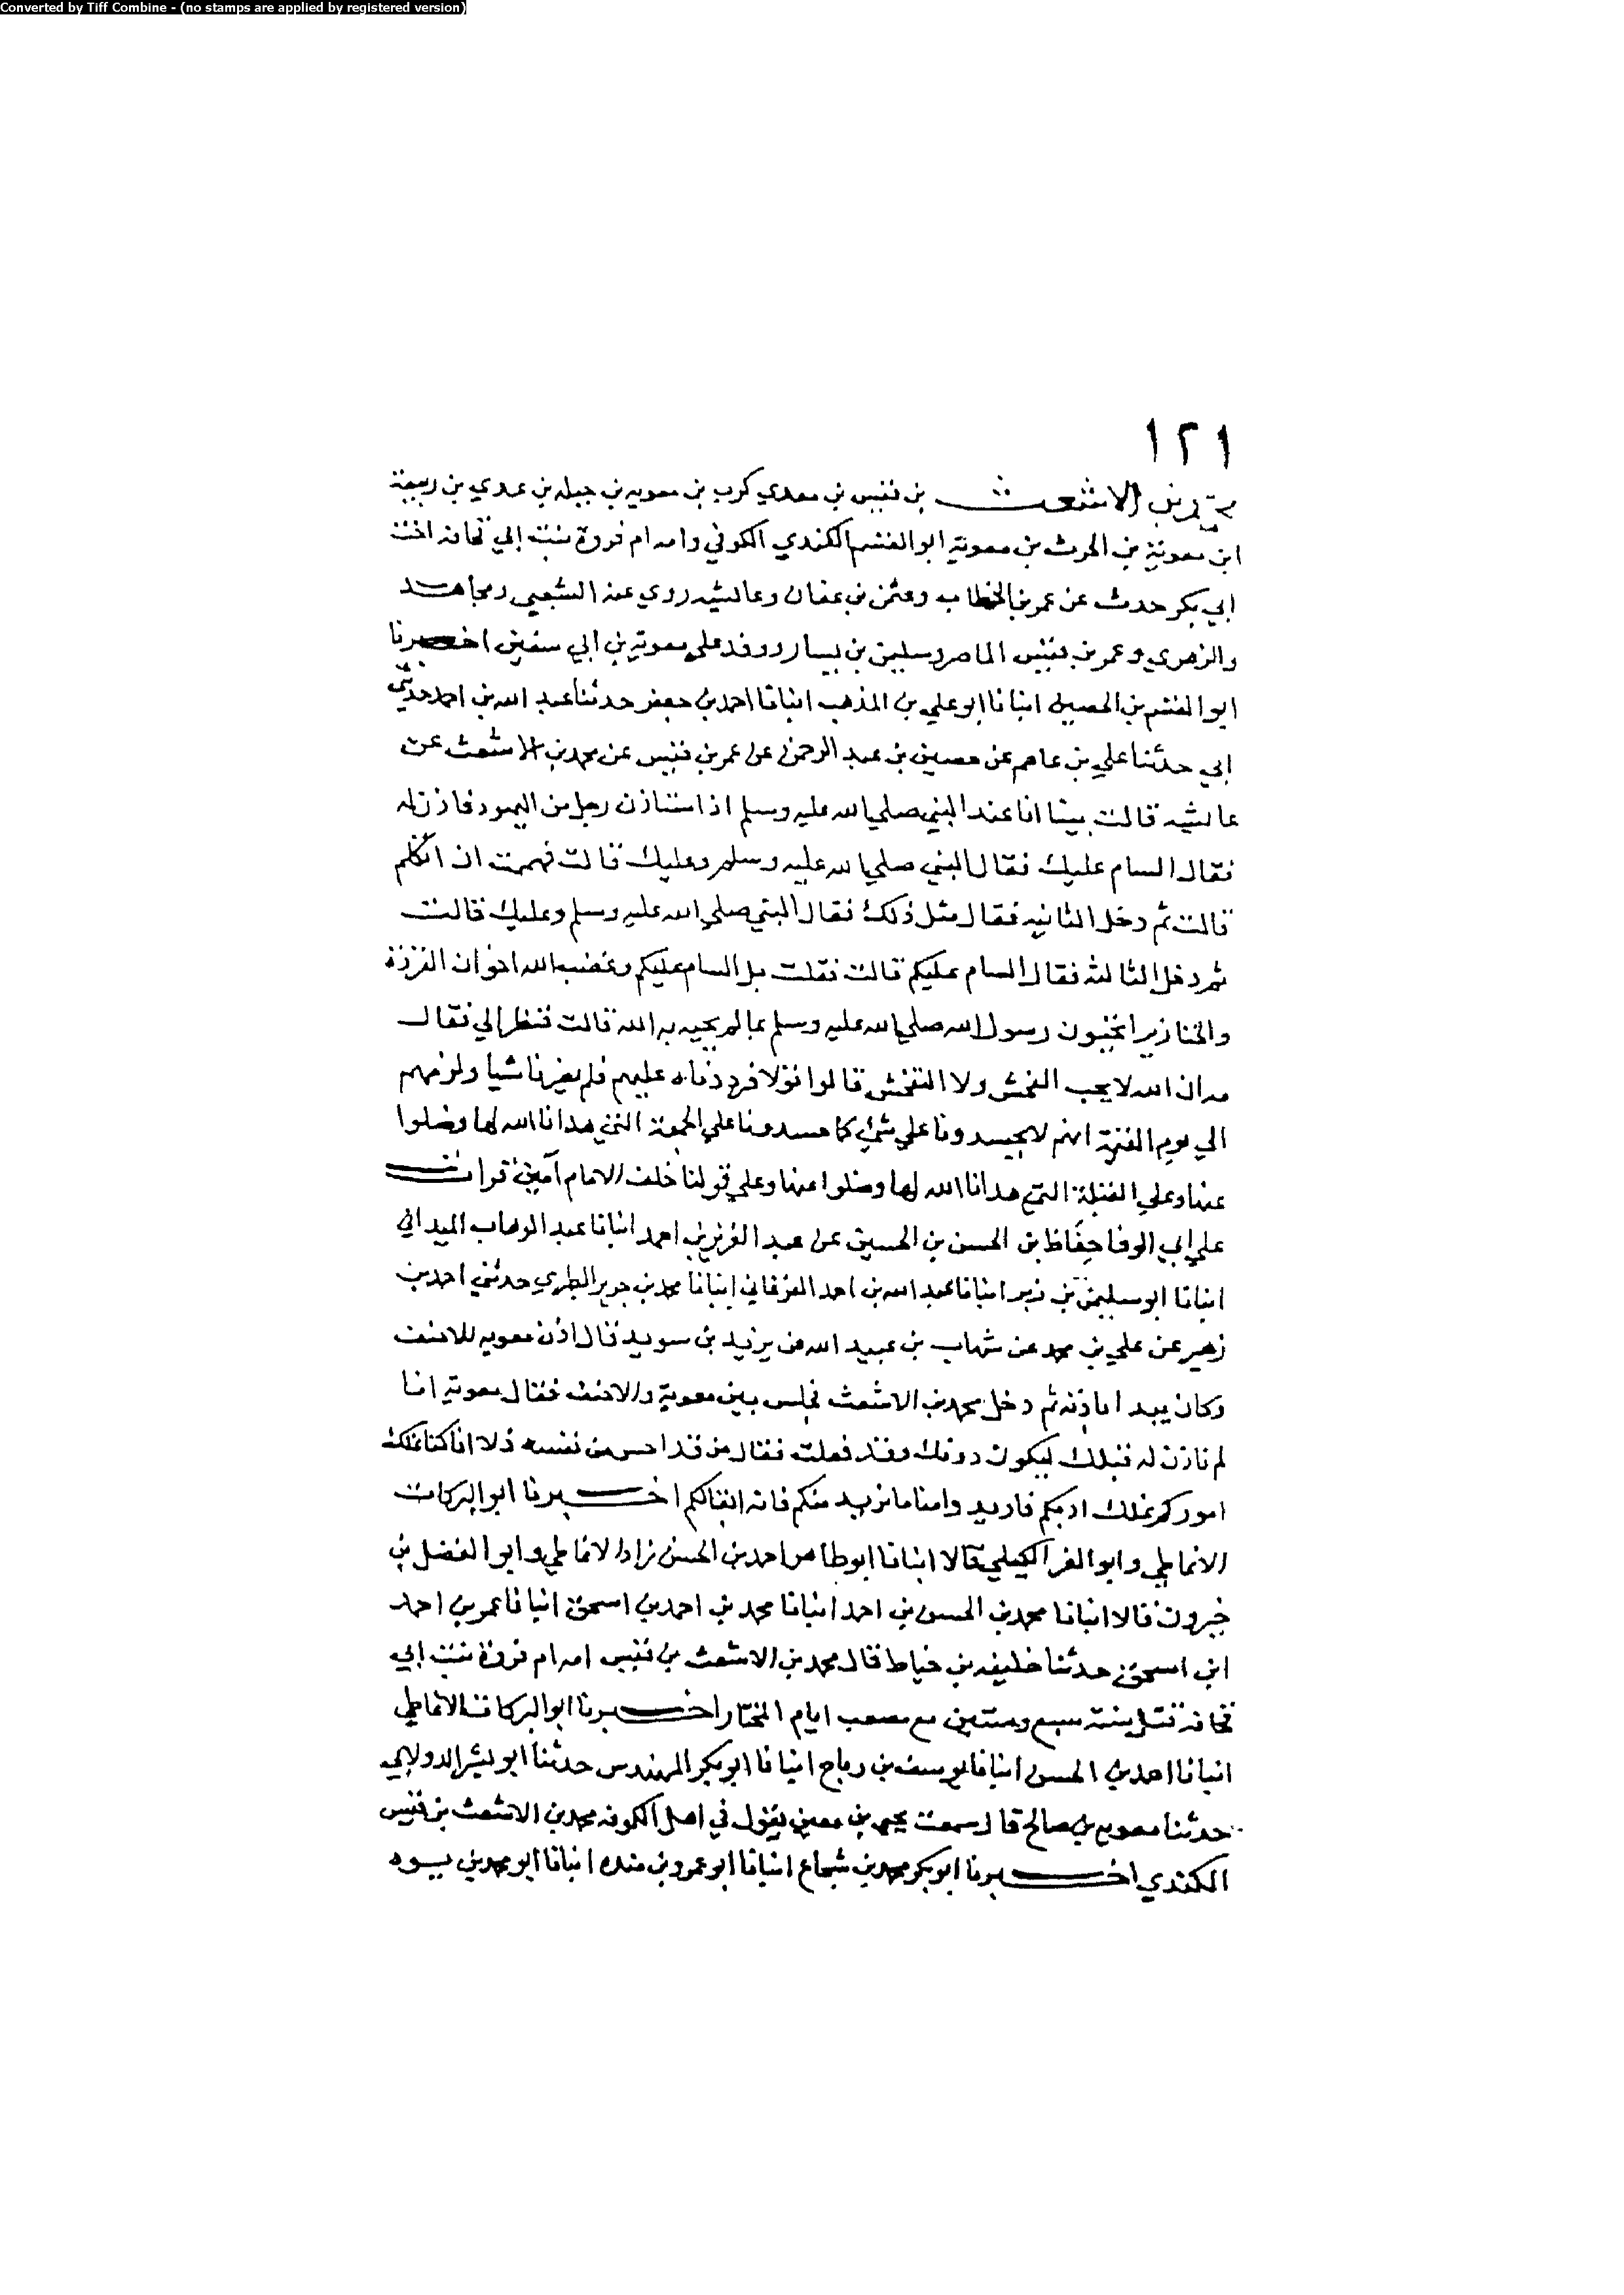 Converted by Tiff Combine - (no stamps are applied by registered version)
١٢١
محمد بن الاشعث بن قيس بن معدي كرب بن معويه بن جبله بن عدي بن ربيعة
ابن معوية بن الحرث بن معوية ابو القسم الكندي الكوفي وامه ام فروة بنت ابي قحافه اخت
ابي بكر حدث عن عمر بن الخطاب وعثمن بن عفان وعائشه روي عنه الشعبي ومجاهد
والزهري وعمر بن قيس الماصر وسليمن بن يسار ووفد علي معوية بن ابي سفين اخبرنا
ابو القسم بن الحصين انبانا ابو علي بن المذهب انبانا احمد بن جعفر حدثنا عبد الله بن احمد حدثني
ابي حدثنا علي بن عاصم عن حصين بن عبد الرحمن عن عمر بن قيس عن محمد بن الاشعث عن
عائشه قالت بينا انا عند النبي صلي الله عليه وسلم اذ استاذن رجل من اليهود فاذن له
فقال السام عليك فقال النبي صلي الله عليه وسلم وعليك قالت فهممت ان اتكلم
قالت ثم دخل الثانيه فقال مثل ذلك فقال النبي صلي الله عليه وسلم وعليك قالت
ثم دخل الثالثه فقال السام عليكم قالت فقلت بل السام عليكم وغضب الله اخوان القردة
والخنازير اتحيون رسول الله صلي الله عليه وسلم بما لم يحيه به الله قالت فنظر الي فقال
مه ان الله لا يحب الفحش ولا التفحش قالوا قولا فرددناه عليهم فلم يضرنا شيا ولزمهم
الي يوم القيمة انهم لا يحسدونا علي شئ كما حسدونا علي الجمعة التي هدانا الله لها وضلوا
عنها وعلي القبلة التي هدانا الله لها وضلوا عنها وعلي قولنا خلف الامام آمين قرات
علي ابي الوفا حفاظ بن الحسن بن الحسين عن عبد العزيز بن احمد انبانا عبد الوهاب الميداني
انبانا ابو سليمن بن زبر انبانا عبد الله بن احمد الفرغاني انبانا محمد بن جرير الطبري حدثني احمد بن
زهير عن علي بن محمد عن شهاب بن عبيد الله عن يزيد بن سويد قال اذن معويه للاحنف
وكان يبدا باذنه ثم دخل محمد بن الاشعث فجلس بين معوية والاحنف فقال معوية انا
لم ناذن له قبلك ليكون دونك وقد فعلت فقال من قد احس من نفسه ذلا انا كما نملك
اموركم نملك ادبكم فاريد وامنا ما نريد منكم فانه ابقالكم اخبرنا ابو البركات
الانماطي وابو العز الكيلي قالا انبانا ابو طاهر احمد بن الحسن زاد الانماطي وابو الفضل بن
خيرون قالا انبانا محمد بن الحسن بن احمد انبانا محمد بن احمد بن اسحق انبانا عمر بن احمد
ابن اسحق حدثنا خليفه بن خياط قال محمد بن الاشعث بن قيس امه ام فروة بنت ابي
قحافه قتل سنة سبع وستين مع مصعب ايام المختار اخبرنا ابو البركات الانماطي
انبانا احمد بن الحسن انبانا يوسف بن رباح انبانا ابو بكر المهندس حدثنا ابو بشر الدولابي
حدثنا معوية بن صالح قال سمعت يحيي بن معين يقول في اهل الكوفه محمد بن الاشعث بن قيس
الكندي اخبرنا ابو بكر محمد بن شجاع انبانا ابو عمرو بن منده انبانا ابو محمد بن يسوه